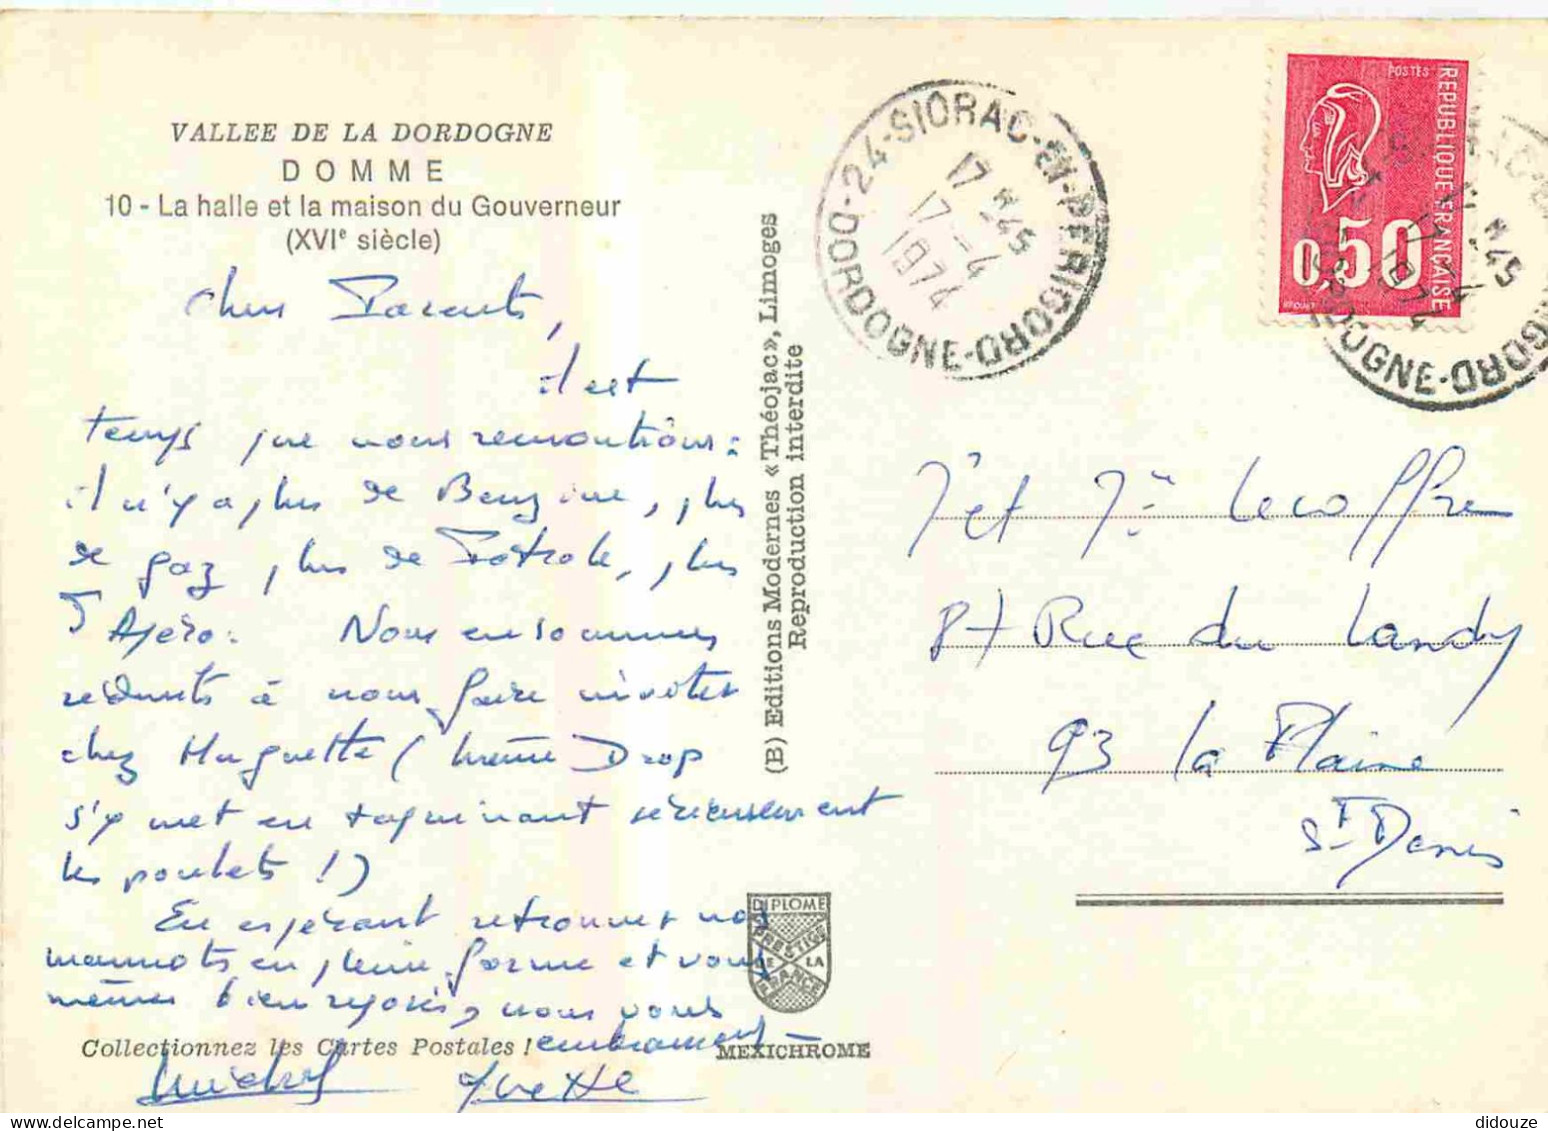 VALLEE DE LA DORDOGNE
DOMME
10 - La halle et la maison du Gouverneur
(XVIe siècle)
Chers Parents,
il est
temps que nous remontions :
il n'y a plus de Benzine, plus
de gaz, plus de Pétrole, plus
d'Apéro. Nous en sommes
réduits à nous faire inviter
chez Huguette (même Drop
s'y met en taquinant sérieusement
les poulets !)
En espérant retrouver nos
mannots en pleine forme et vous
mêmes bien reposés, nous vous
embrassons
Collectionnez les Cartes Postales !
Michel Yvette
(B) Editions Modernes «Théojac», Limoges
Reproduction interdite
DIPLOME
PRESTIGE
DE LA
FRANCE
MEXICHROME
24-SIORAC-EN-PERIGORD-DORDOGNE-DORD
17 H 45
17 - 4
1974
POSTES
REPUBLIQUE FRANÇAISE
0,50
17 H 45
17 - 4
1974
Lecoffre
Rue du Landy
93 La Plaine
St Denis
didouze